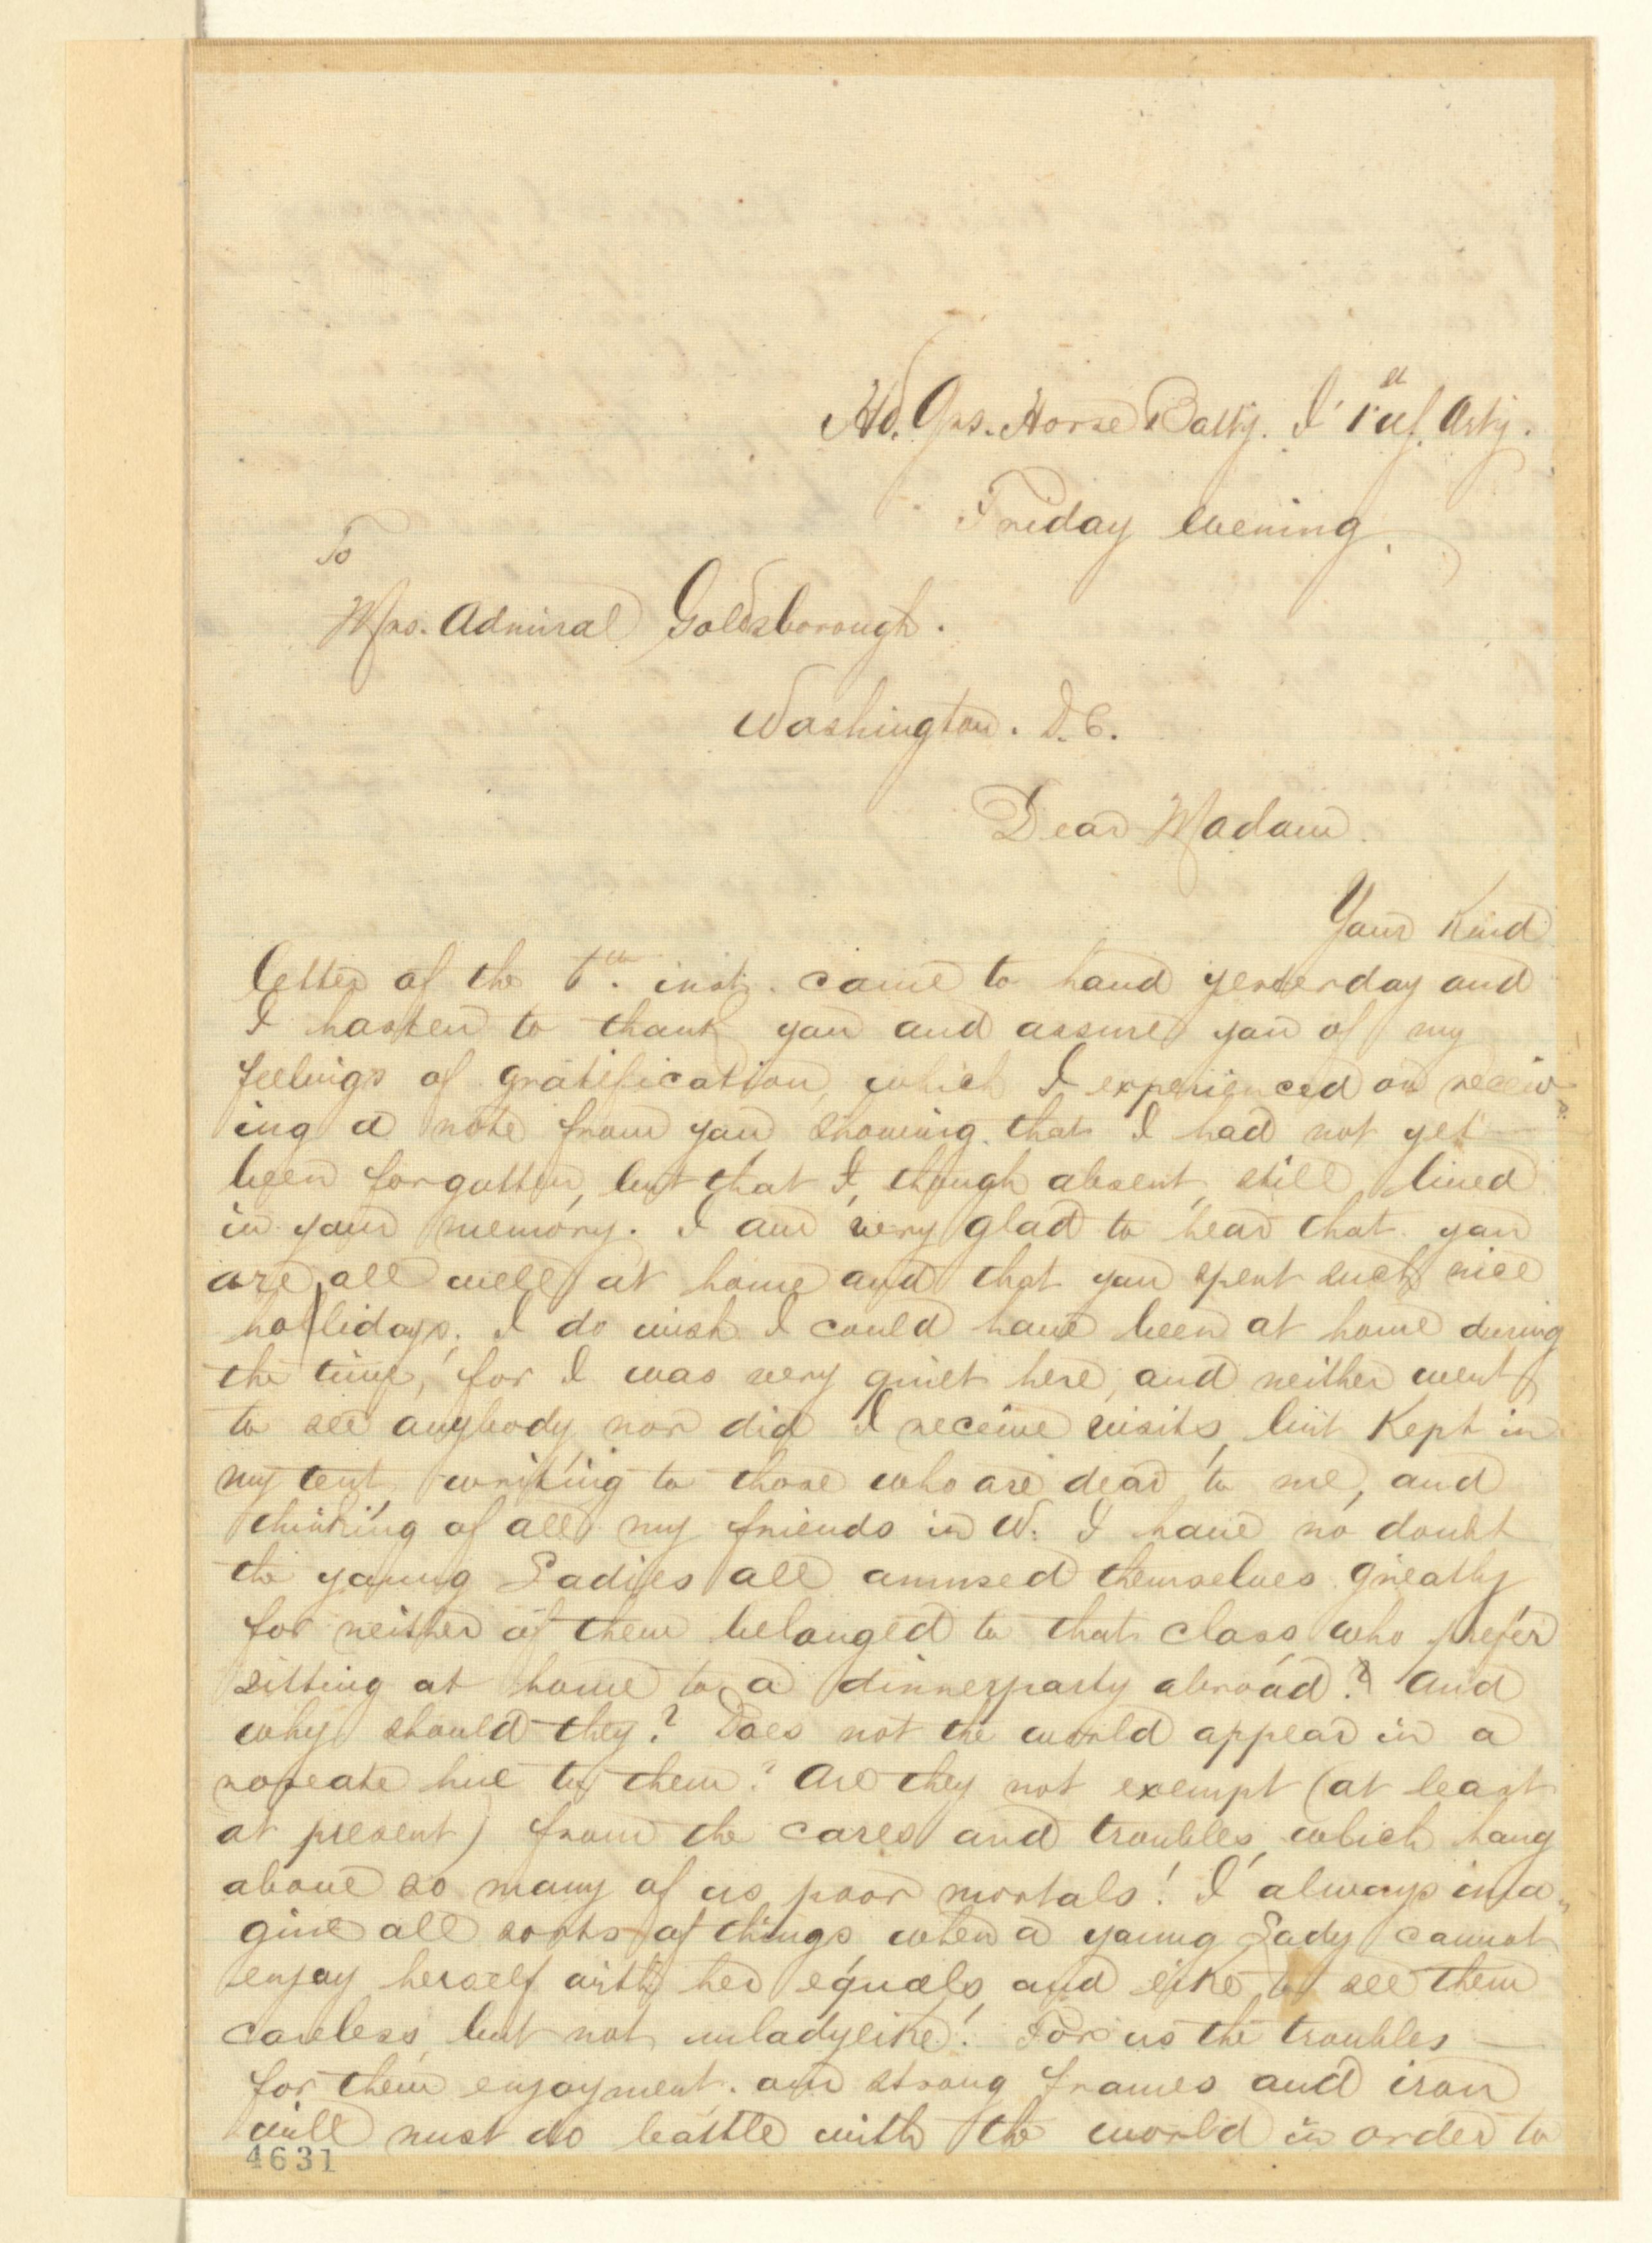 Hd. Qrs. Horse Batty. I 1st Arty.
Friday evening.
To
Mrs. Admiral Goldsborough.
Washington. D.C.
Dear Madam.
Your Kind
letter of the inst. came to hand yesterday and
I hasten to thank you and assure you of my
feelings of gratification, which I experienced on receiv
ing a note from you showing that I had not yet
been forgotten, but that I, though absent, still lived
in your memory. I am very glad to hear that you
are all well at home and that you spent such nice
hollidays. I do wish I could have been at home during
the time, for I was very quiet here, and neither went
to see anybody nor did I receive visits, but Kept in
my tent, writing to those who are dear to me, and
thinking of all my friends in W. I have no doubt
the young Ladies all amused themselves greatly
for neither of them belonged to that class who prefer
sitting at home to a dinnerparty abroad? And
why should they? Does not the world appear in a
roseate hue to them? Are they not exempt (at least
at present) from the cares and troubles, which hang
above so many of us poor mortals! I always ima„
gine all sorts of things, when a young Lady cannot
enjoy herself with her equals, and like to see them
careless, but not unladylike! For us the troubles —
for them enjoyment. our strong frames and iron
will must do battle with the world in order to
4631